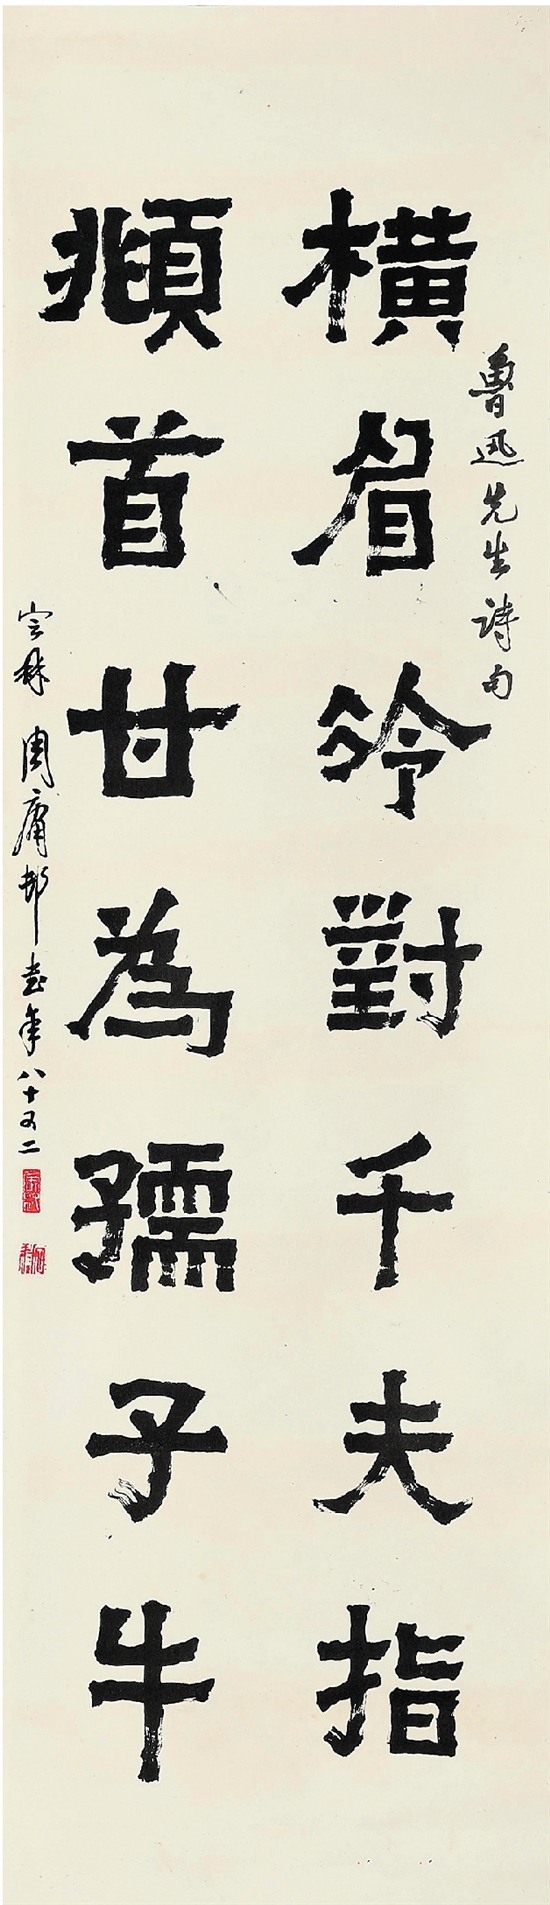 魯迅先生詩句
橫眉冷對千夫指
頫首甘為孺子牛
林 周庸邨書年八十又二